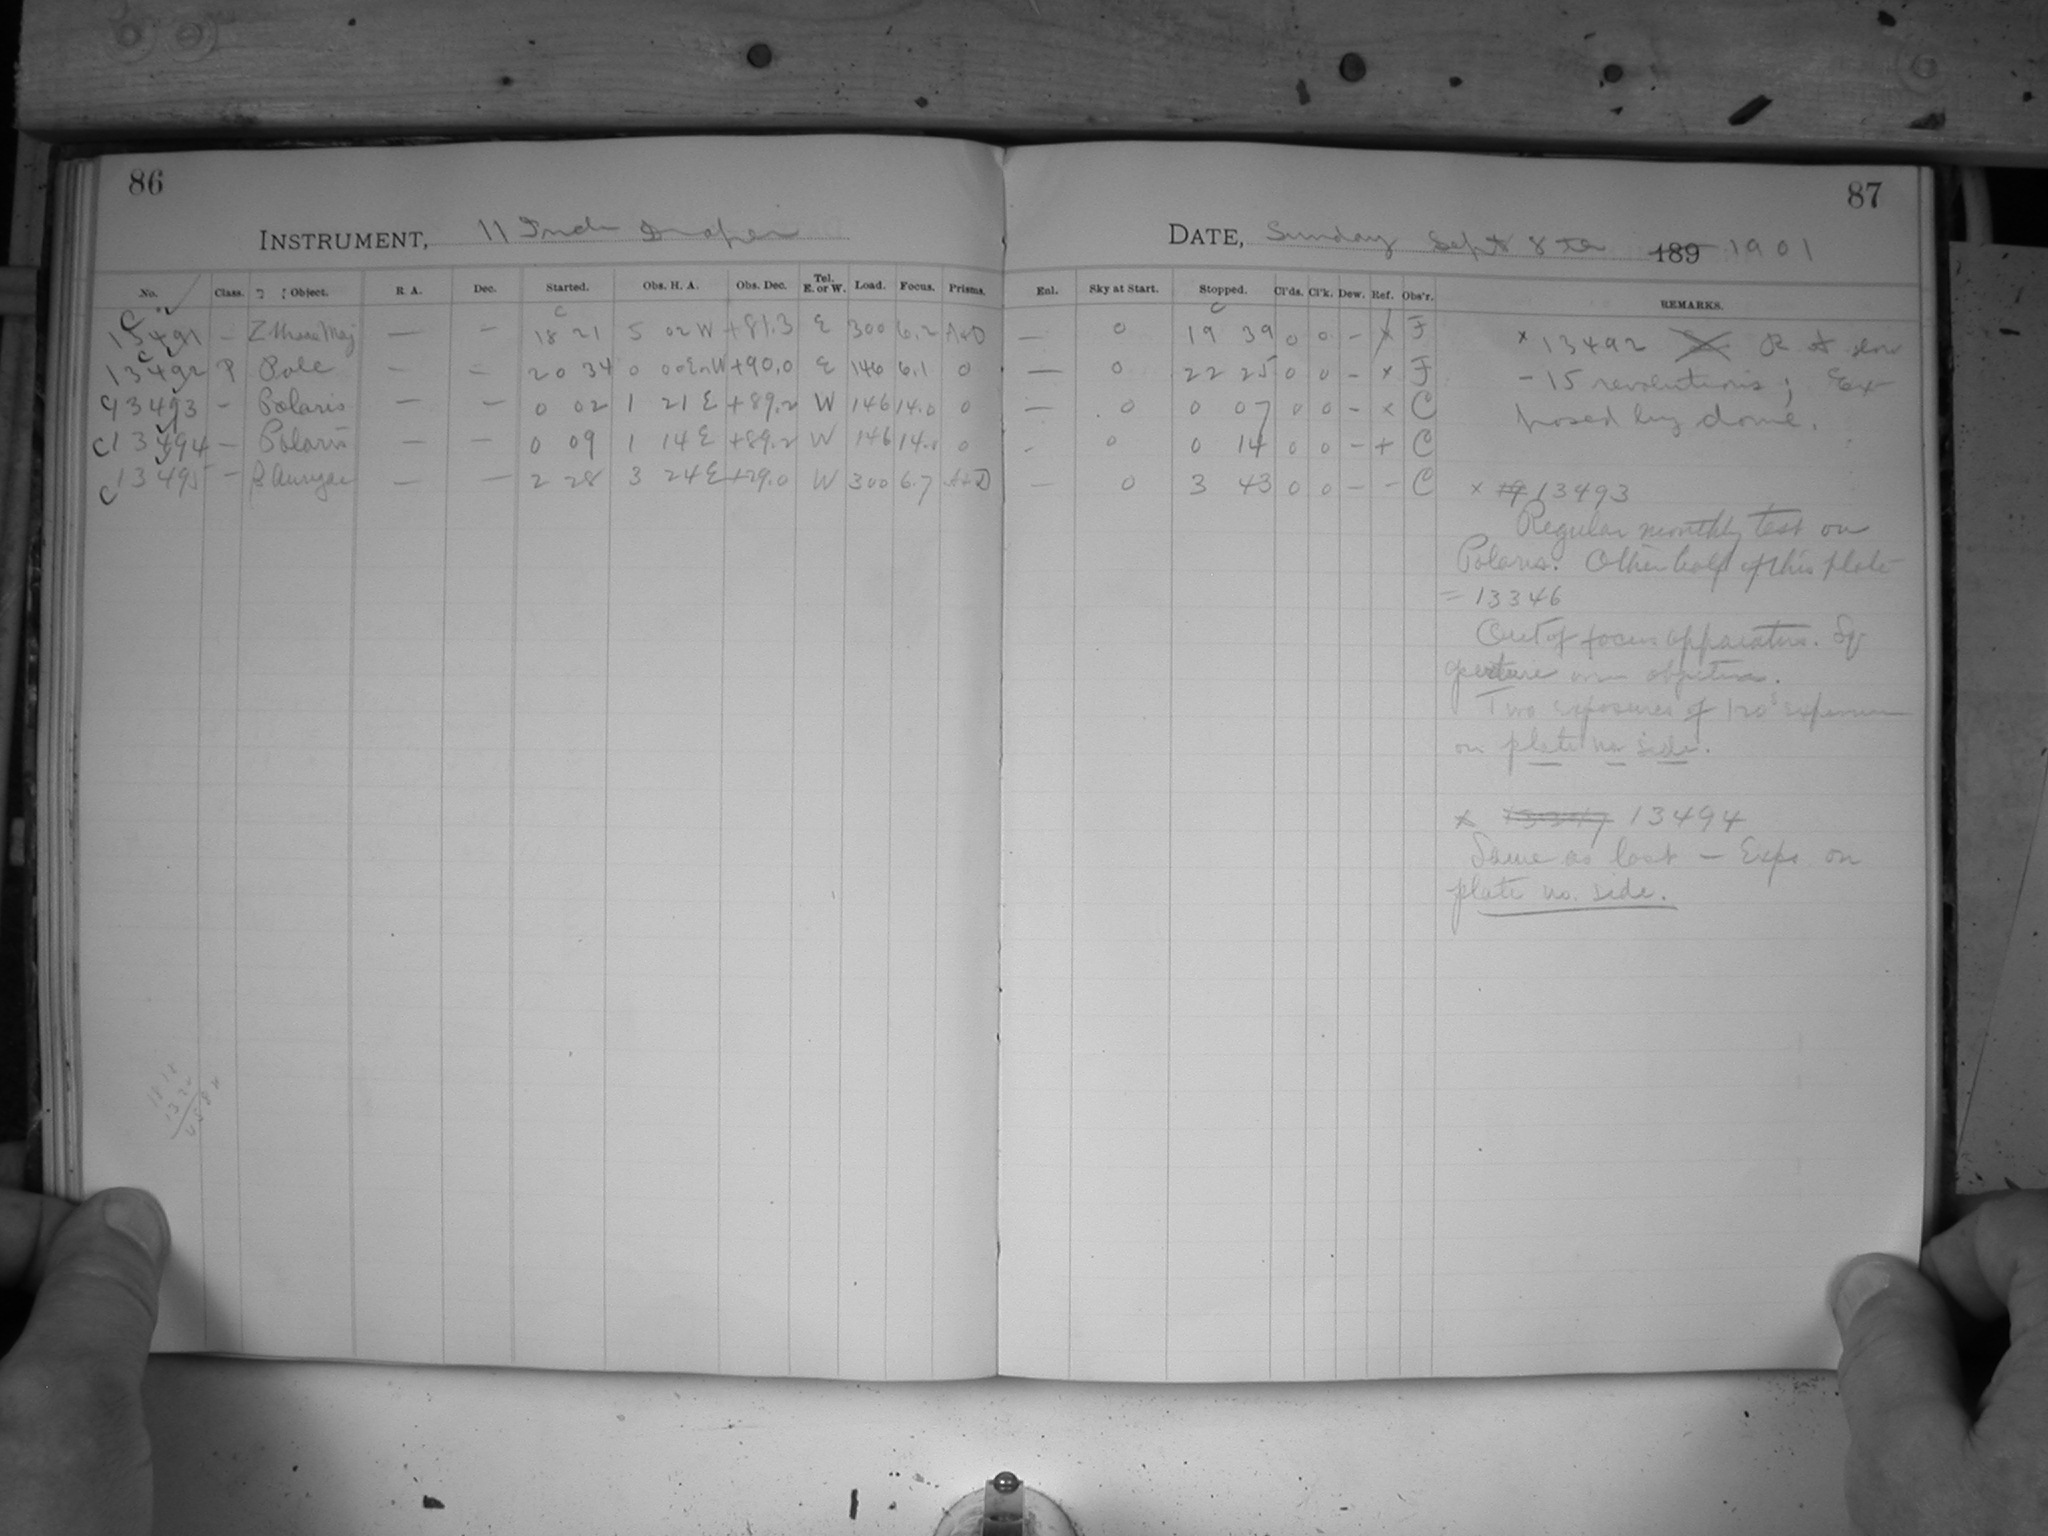 86
INSTRUMENT, 11 Inch Draper
No. Class. Object. R. A. Dec. Started. Obs. H. A. Obs. Dec. Tel. E. or W. Load. Focus. Prisms.
C 13491 – Z Ursae Maj — – 18 21 5 02 W +81.3 E 300 6.2 A+D
C 13492 P Pole – – 20 34 0 00 E or W +90.0 E 146 6.1 0
C 13493 – Polaris — – 0 02 1 21 E +89.2 W 146 14.0 0
C 13494 – Polaris – – 0 09 1 14 E +89.2 W 146 14.0 0
C 13495 – β Aurigae — – 2 28 3 24 E +29.0 W 300 6.7 A+D
87
DATE, Sunday Sept 8th 189 1901
Enl. Sky at Start. Stopped. Cl'ds. Cl'k. Dew. Ref. Obs'r. REMARKS.
— 0 19 39 0 0 – x F
— 0 22 25 0 0 – x F
— 0 0 07 0 0 – x C
- 0 0 14 0 0 – + C
— 0 3 43 0 0 – – C
x 13492 R A slow
– 15 revolutions; Ex-
posed by dome.
x 13493
Regular monthly test on
Polaris. Other half of this plate
= 13346
Out of focus apparatus. Sq
aperture over objective.
Two exposures of 120s
on plate no side.
x 13347 13494
Same as last — Exps on
plate no. side.